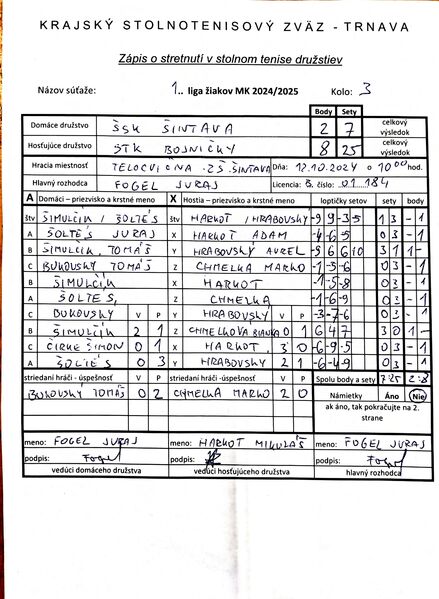 KRAJSKÝ STOLNOTENISOVÝ ZVÄZ - TRNAVA
Zápis o stretnutí v stolnom tenise družstiev
Názov súťaže: 1.. liga žiakov MK 2024/2025 Kolo: 3
Body Sety
Domáce družstvo ŠSK ŠINTAVA 2 7 celkový výsledok
Hosťujúce družstvo STK BOJNIČKY 8 25 celkový výsledok
Hracia miestnosť TELOCVIČŇA ZŠ ŠINTAVA Dňa: 12.10.2024 o 10 00 hod.
Hlavný rozhodca FOGEL JURAJ Licencia B. číslo: 01 184
A Domáci – priezvisko a krstné meno X Hostia – priezvisko a krstné meno loptičky setov sety body
štv ŠIMULČÍK / ŠOLTÉS štv HARKOT / HRABOVSKÝ -9 9 -3 -5 1 3 - 1
A ŠOLTÉS JURAJ X HARKOT ADAM -4 -6 -5 0 3 - 1
B ŠIMULČÍK TOMÁŠ Y HRABOVSKÝ AUREL -9 6 6 10 3 1 1 -
C BUKOVSKÝ TOMÁŠ Z CHMELKA MARKO -1 -3 -6 0 3 - 1
B ŠIMULČÍK X HARKOT -1 -5 -8 0 3 - 1
A ŠOLTÉS Z CHMELKA -1 -6 -9 0 3 - 1
C BUKOVSKÝ V P Y HRABOVSKÝ V P -3 -7 -6 0 3 - 1
B ŠIMULČÍK 2 1 Z CHMELKOVÁ BIANKA 0 1 6 4 7 3 0 1 -
C ČIRKE ŠIMON 0 1 X HARKOT 3 0 -6 -9 -5 0 3 - 1
A ŠOLTÉS 0 3 Y HRABOVSKÝ 2 1 -6 -4 -9 0 3 - 1
striedaní hráči - úspešnosť V P striedaní hráči - úspešnosť V P Spolu body a sety 7:25 2:8
BUKOVSKÝ TOMÁŠ 0 2 CHMELKA MARKO 2 0 Námietky Áno Nie
ak áno, tak pokračujte na 2. strane
meno: FOGEL JURAJ meno: HARKOT MIKULÁŠ meno: FOGEL JURAJ
podpis: Fogel podpis: podpis: Fogel
vedúci domáceho družstva vedúci hosťujúceho družstva hlavný rozhodca